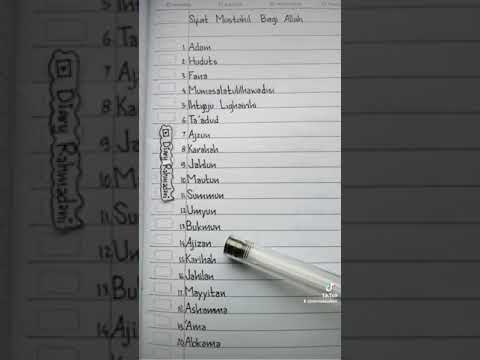 Sifat Mustahil Bagi Allah
1 Adam
2 Huduts
3 Fana
4 Mumasalatulilhawadisi
5 Ihtiyaju Lighairihi
6 Ta'adud
7 Ajzun
8 Karahah
9 Jahlun
10 Mautun
11 Summun
12 Umyun
13 Bukmun
14 Ajizan
15 Karihah
16 Jahilan
17 Mayyitan
18 Ashamma
19 'Ama
20 Abkama
Diary Rahwadini
TikTok